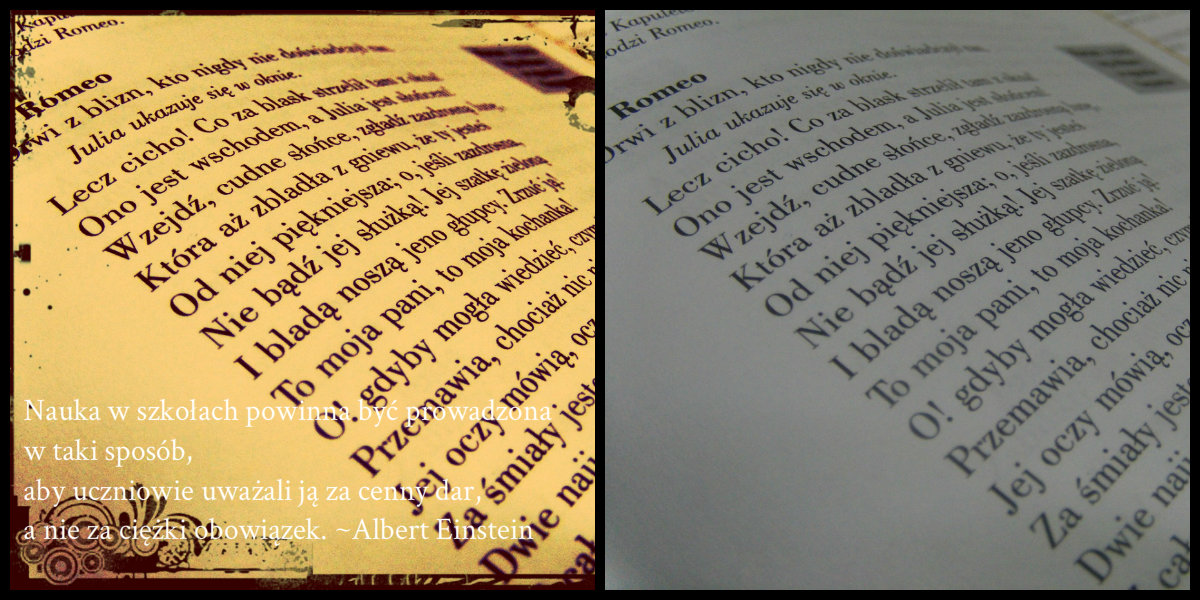 Kapulet
odzi Romeo.
Romeo
Drwi z blizn, kto nigdy nie doświadczył ran.
Julia ukazuje się w oknie.
Lecz cicho! Co za blask strzelił tam z okna!
Ono jest wschodem, a Julia jest słońcem!
Wzejdź, cudne słońce, zgładź zazdrosną lunę,
Która aż zbladła z gniewu, że ty jesteś
Od niej piękniejsza; o, jeśli zazdrosna,
Nie bądź jej służką! Jej szatkę zieloną
I bladą noszą jeno głupcy. Zrzuć ją!
To moja pani, to moja kochanka!
O! gdyby mogła wiedzieć, czym
Przemawia, chociaż nic
Jej oczy mówią, ocz
Za śmiały jeste
Dwie naj
cał
Nauka w szkołach powinna być prowadzona
w taki sposób,
aby uczniowie uważali ją za cenny dar,
a nie za ciężki obowiązek. ~Albert Einstein
Kapulet
hodzi Romeo.
Romeo
Drwi z blizn, kto nigdy nie doświadczył ran.
Julia ukazuje się w oknie.
Lecz cicho! Co za blask strzelił tam z okna!
Ono jest wschodem, a Julia jest słońcem!
Wzejdź, cudne słońce, zgładź zazdrosną lunę,
Która aż zbladła z gniewu, że ty jesteś
Od niej piękniejsza; o, jeśli zazdrosna,
Nie bądź jej służką! Jej szatkę zieloną
I bladą noszą jeno głupcy. Zrzuć ją!
To moja pani, to moja kochanka!
O! gdyby mogła wiedzieć, czym
Przemawia, chociaż nic
Jej oczy mówią, ocz
Za śmiały jeste
Dwie naj
cał